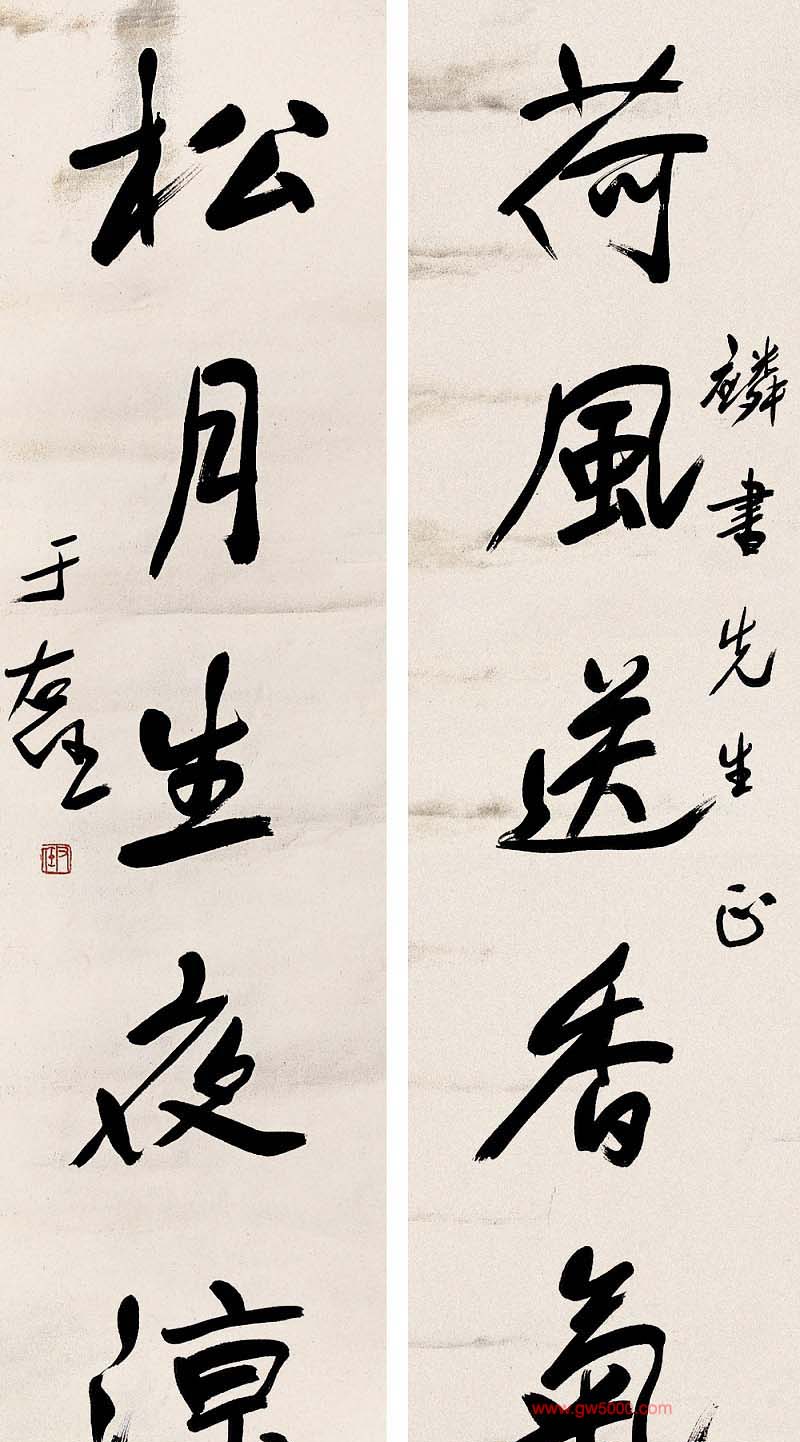 麟書先生正
荷風送香氣
松月生夜涼
于右任
www.gw5000.com